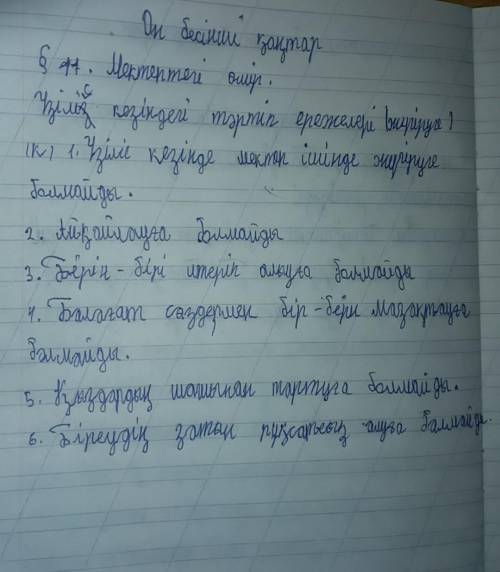 Он бесінші қаңтар
§ 44. Мектептегі өмір.
Үзіліс кезіндегі тәртіп ережелері (жүгіруге)
(к) 1. Үзіліс кезінде мектеп ішінде жүгіруге
болмайды.
2. Айқайлауға болмайды
3. Бірін-бірі итеріп алыуға болмайды
4. Балағат сөздермен бір-берін мазақтауға
болмайды.
5. Қыздардың шашынан тартуға болмайды.
6. Біреудің затын рұқсатсыз алуға болмайды.